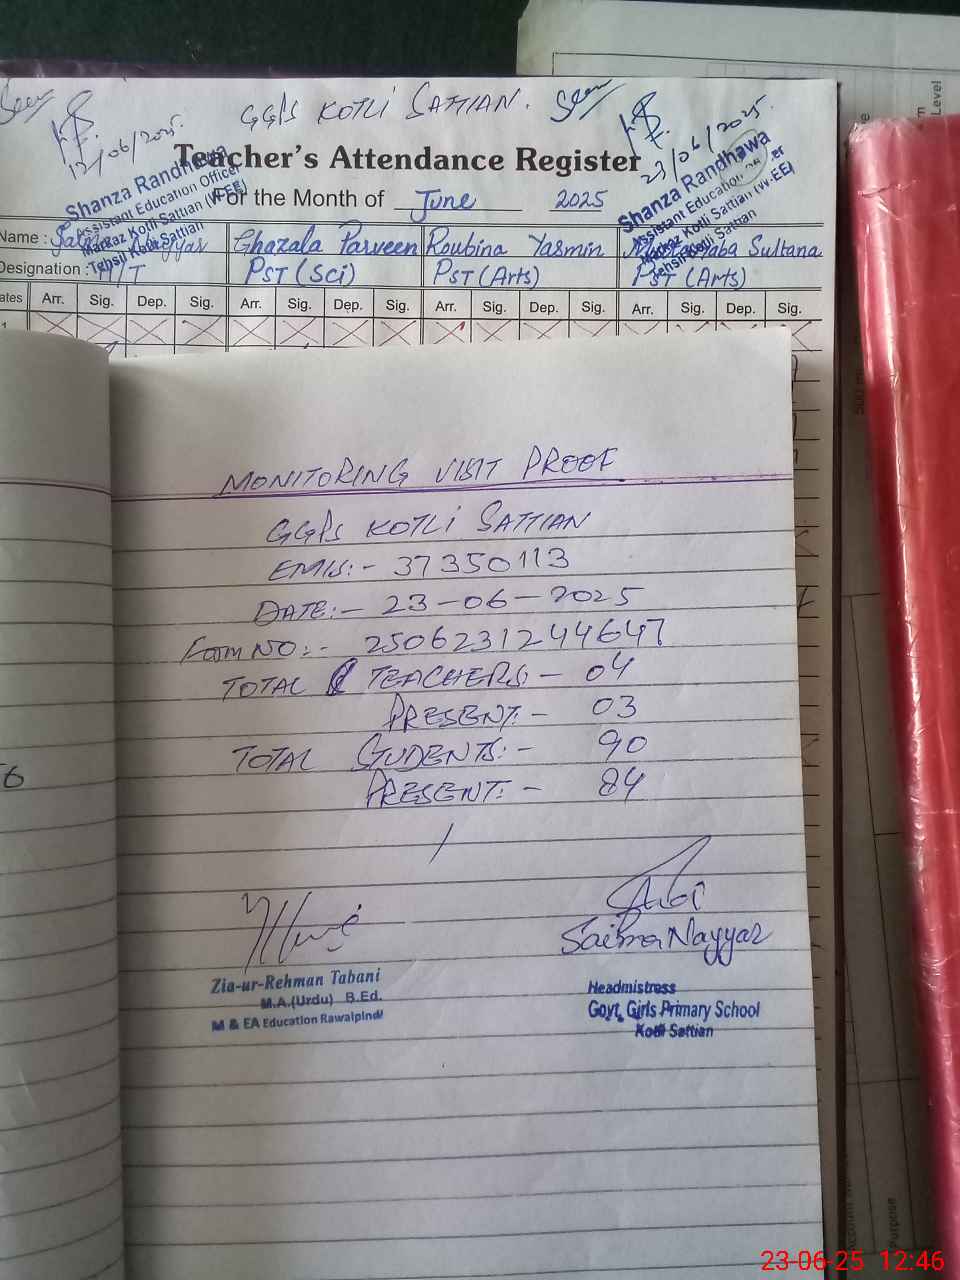 Seen
12/06/2025.
GGPS KOTLI SATTIAN.
Seen
23/06/2025.
Teacher's Attendance Register
Shanza Randhawa
Assistant Education Officer
Markaz Kotli Sattian (W-EE)
Tehsil Kotli Sattian
Shanza Randhawa
Assistant Education
Markaz Kotli Sattian (W-EE)
Tehsil Kotli Sattian
For the Month of June 2025
Name : Nayyar Ghazala Parveen Roubina Yasmin Sultana
Designation : PST (Sci) PST (Arts) PST (Arts)
ates Arr. Sig. Dep. Sig. Arr. Sig. Dep. Sig. Arr. Sig. Dep. Sig. Arr. Sig. Dep. Sig.
MONITORING VISIT PROOF
GGPS KOTLI SATTIAN
EMIS:- 37350113
DATE:- 23-06-2025
Form NO:- 2506231244647
TOTAL TEACHERS:- 04
PRESENT:- 03
TOTAL STUDENTS:- 90
PRESENT:- 84
Saima Nayyar
Zia-ur-Rehman Tabani
M.A.(Urdu) B.Ed.
M & EA Education Rawalpindi
Headmistress
Govt. Girls Primary School
Kotli Sattian
Level
Purpose
23-06-25 12:46